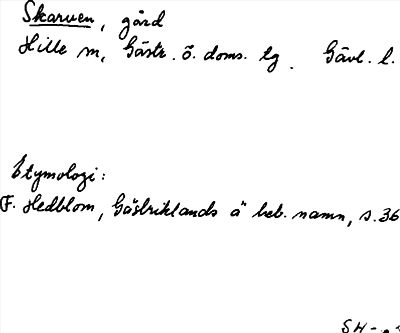 Skarven, gård
Hille sn, Gästr. ö. doms. tg. Gävl. l.
Etymologi:
F. Hedblom, Gästriklands ä beb. namn, s. 36